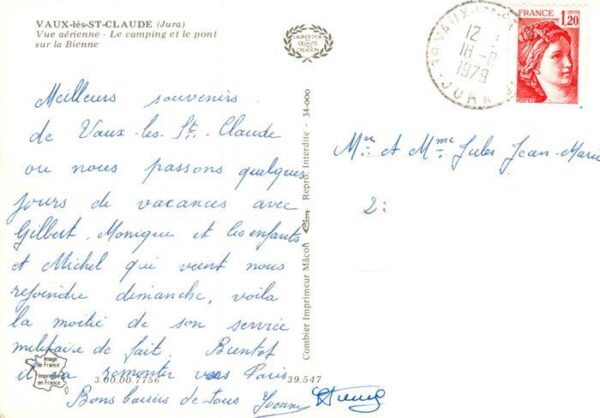 VAUX-lès-ST-CLAUDE (Jura)
Vue aérienne - Le camping et le pont
sur la Bienne
LABEL D'OR
QUALITÉ
CRÉATION
39 VAUX
12
18-
1979
JURA
FRANCE
1,20
Meilleurs souvenirs
de Vaux-les-St-Claude
ou nous passons quelques
jours de vacances avec
Gilbert, Monique et les enfants
et Michel qui vient nous
rejoindre dimanche, voila
la moitié de son service
militaire de fait. Bientot
il va remonter vers Paris
Bons baisers de tous Yvonne
Mr et Mme Jules Jean-Marie
2:
Combier Imprimeur Mâcon
Cim
Repro. Interdite - 34-000
Image
de France
Imprimée
en France
3.00.00.7756
39.547